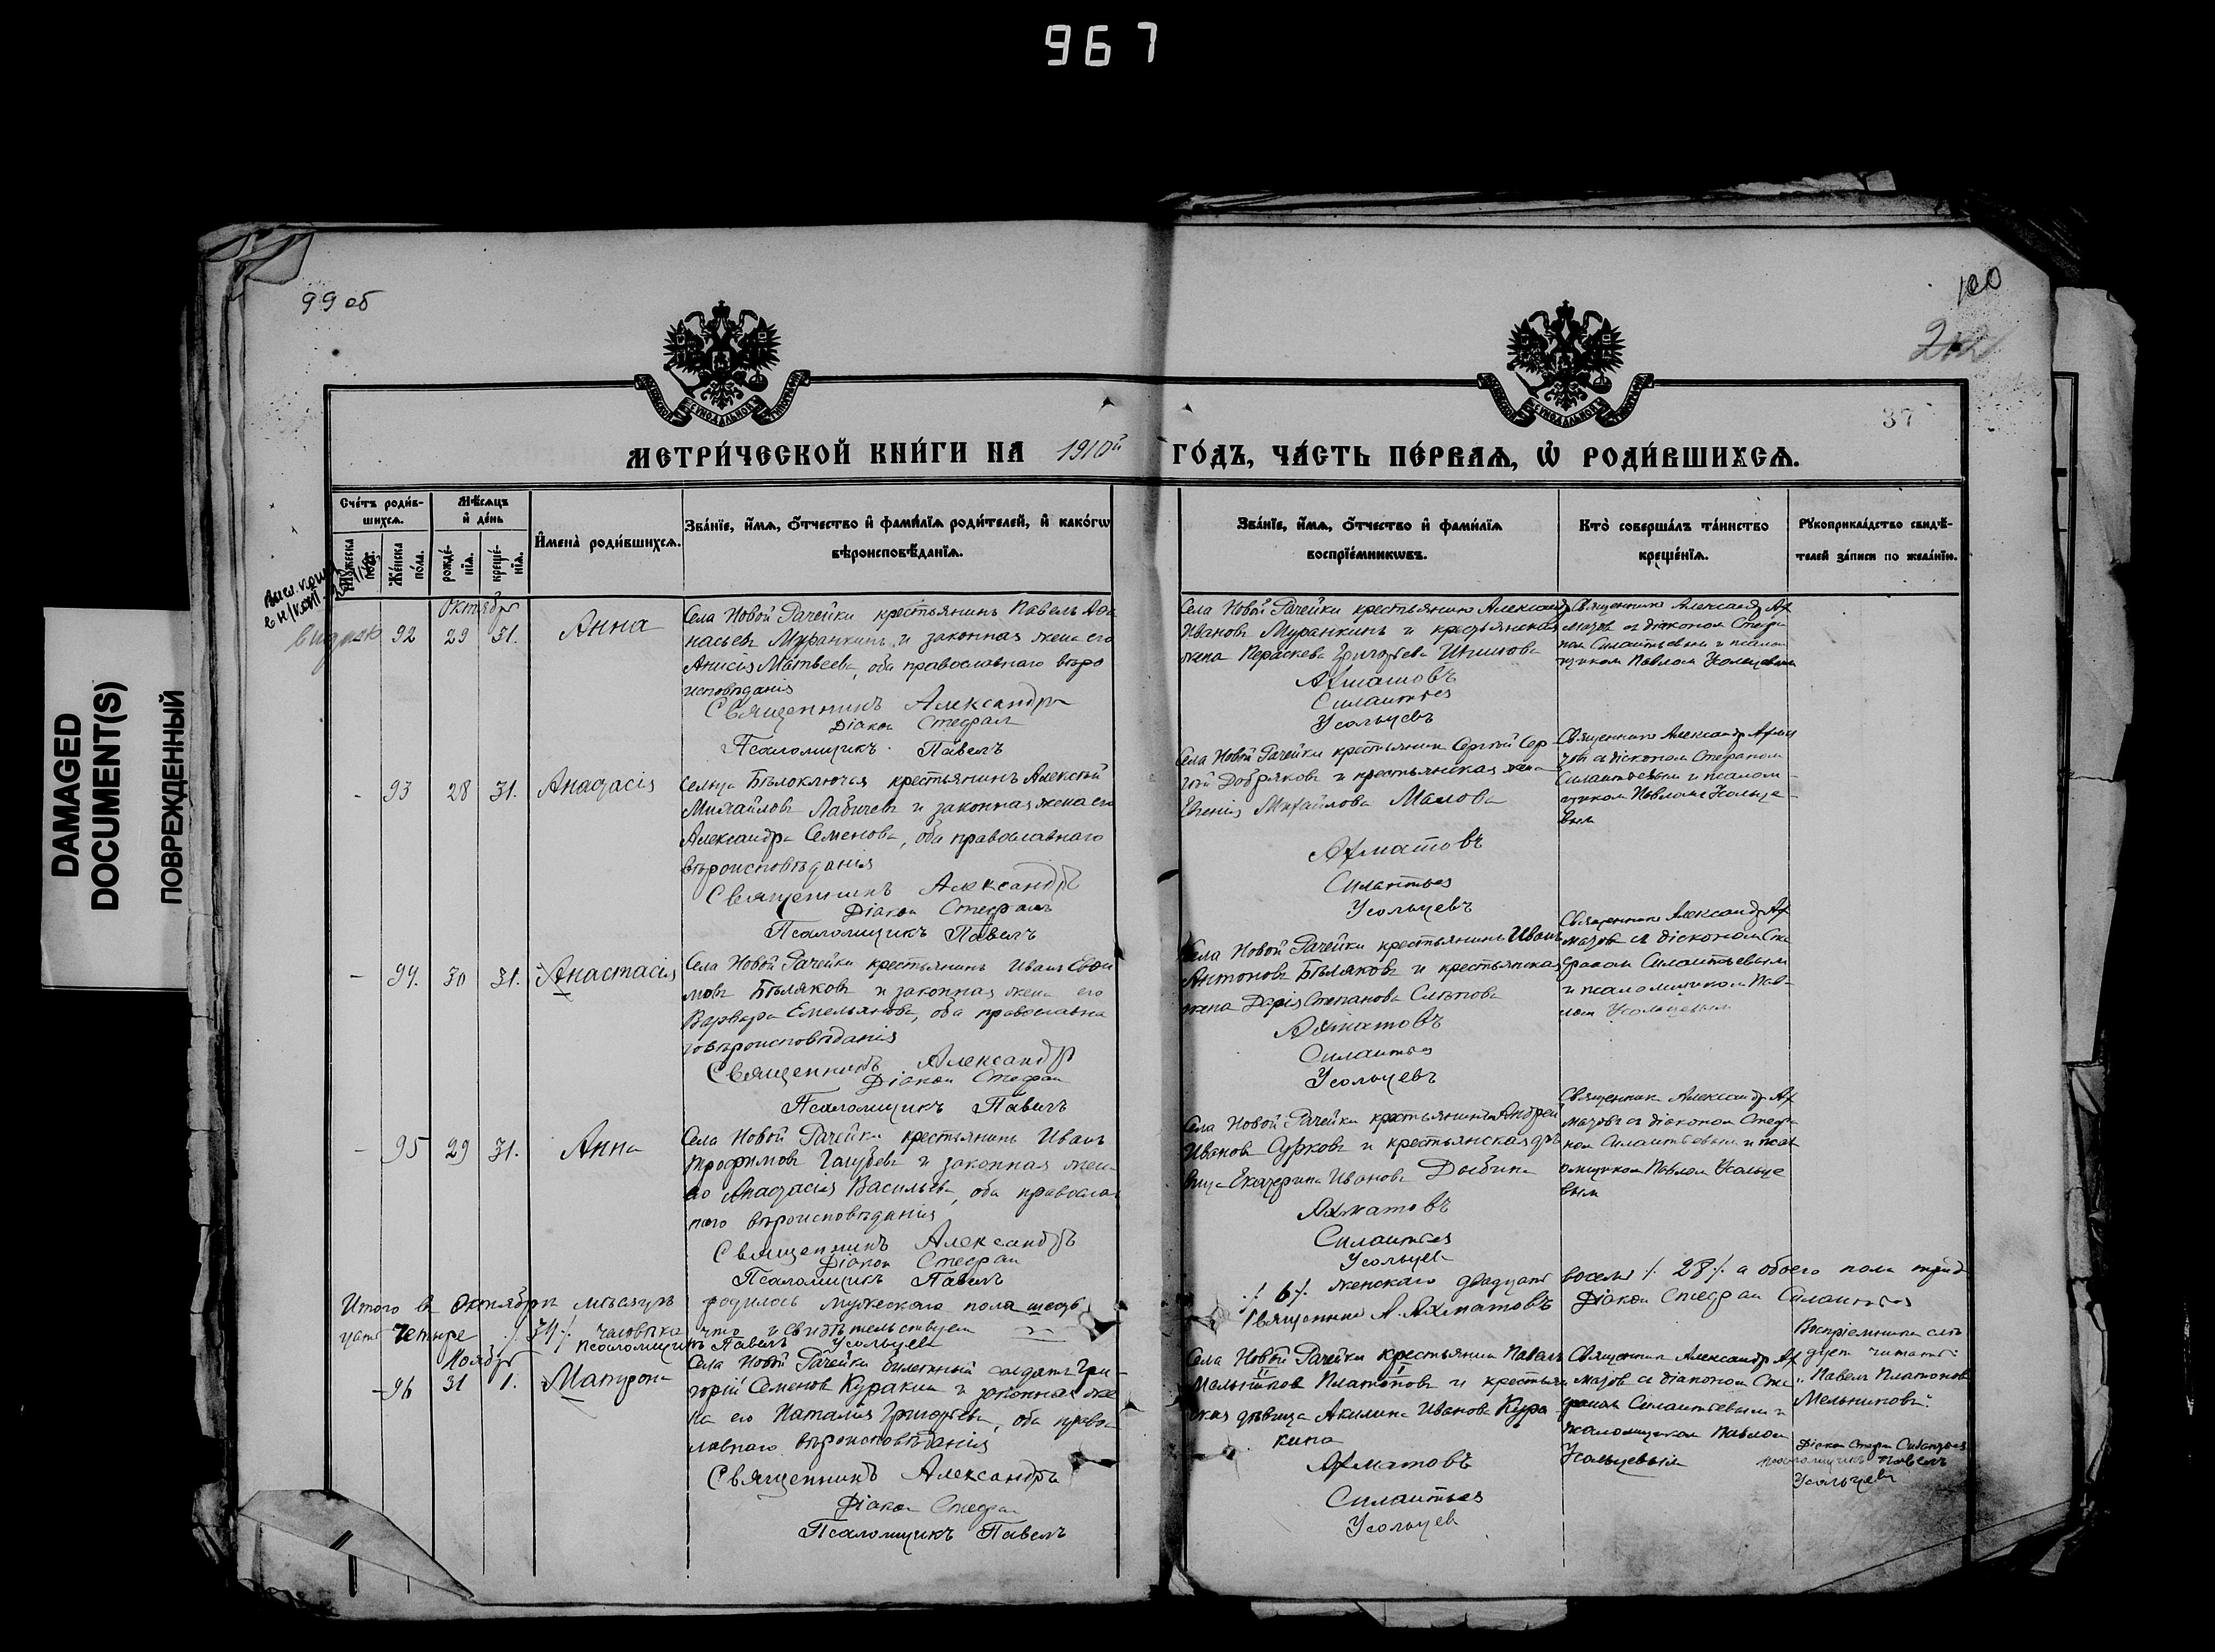 967
DAMAGED
DOCUMENT(S)
ПОВРЕЖДЕННЫЙ
99 об
100
37
МЕТРИ́ЧЕСКОЙ КНИ́ГИ НА 1910й ГО́ДЪ, ЧА́СТЬ ПЕ́РВАѦ, Ѡ҆ РОДИ́ВШИХСѦ.
Сче́тъ роди́в-
шихсѧ.
Мѣ́сѧцъ
и҆ де́нь
Мꙋ́жеска
по́ла.
Же́нска
по́ла.
рожде́-
нїѧ.
креще́-
нїѧ.
И҆мена̀ роди́вшихсѧ.
Зва́нїе, и҆́мѧ, ѻ҆́тчество и҆ фами́лїѧ роди́телей, и҆ како́гѡ
вѣроисповѣ́данїѧ.
Зва́нїе, и҆́мѧ, ѻ҆́тчество и҆ фами́лїѧ
воспрїе́мникѡвъ.
Кто̀ соверша́лъ та́инство
креще́нїѧ.
Рꙋкоприкла́дство свидѣ́-
телей за́писи по жела́нїю.
Октябрь
92 29 31. Анна
Села Новой Рачейки крестьянинъ Павелъ Афа
насьевъ Муранкинъ и законная жена его
Анисія Матвеева, оба православнаго вѣро
исповѣданія
Священникъ Александръ
Діакон Стефан
Псаломщикъ Павелъ
Села Новой Рачейки крестьянинъ Александр
Ивановъ Муранкинъ и крестьянская
жена Параскева Григорьева
Ахматовъ
Силантьев
Усольцевъ
Священникъ Александр Ах
матов съ діаконом Стефа
ном Силантьевым и псалом
щиком Павлом Усольцевым
- 93 28 31. Анастасія
Сельца Бѣлоключья крестьянинъ Алексѣй
Михайловъ Лабичевъ и законная жена его
Александра Семенова, оба православнаго
вѣроисповѣданія
Священникъ Александръ
Діакон Стефанъ
Псаломщикъ Павелъ
Села Новой Рачейки крестьянин Сергѣй Сер-
гѣй Добряковъ и крестьянская жена
Евгенія Михайлова Маслова
Ахматовъ
Силантьев
Усольцевъ
Священникъ Александр Ахма
тов съ діаконом Стефаном
Силантьевым и псалом-
щиком Павлом Усольце-
вым
- 94. 30 31. Анастасія
Села Новой Рачейки крестьянинъ Иванъ Ефи
мовъ Бѣляковъ и законная жена его
Варвара Емельянова, оба православна
го вѣроисповѣданія
Священникъ Александр
Діакон Стефан
Псаломщикъ Павелъ
Села Новой Рачейки крестьянинъ Иванъ
Антоновъ Бѣляковъ и крестьянская
жена Дарія Степанова Слѣпова
Ахматовъ
Силантьев
Усольцевъ
Священникъ Александр Ах
матов съ діаконом Сте
фаном Силантьевым
и псаломщиком Пав-
лом Усольцевым
- 95 29 31. Анна
Села Новой Рачейки крестьянинъ Иванъ
Трофимовъ Голубевъ и законная жена
его Анастасія Васильева, оба православ
наго вѣроисповѣданія
Священникъ Александръ
Діакон Стефан
Псаломщикъ Павелъ
Села Новой Рачейки крестьянинъ Андрей
Ивановъ Сурковъ и крестьянская дѣ
вица Екатерина Иванова Дыбина
Ахматовъ
Силантьев
Усольцев
Священник Александр Ах
матовъ съ діаконом Стефа
ном Силантьевым и псал
омщиком Павлом Усольце
вым
Итого въ Октябрѣ мѣсяцѣ родилось мужескаго пола шесть ./. 6 ./. женскаго двадцать восемь ./. 28 ./. а обоего пола трид
цать четыре ./. 34 ./. человѣка что и свидѣтельствуем Священникъ А. Ахматовъ Діакон Стефан Силантьев
Псаломщикъ Павелъ Усольцев
Ноябрь
- 96 31 1. Матрона
Села Новой Рачейки билетный солдатъ Гри-
горій Семенов Куракин и законная же
на его Наталія Григорьева, оба правос
лавнаго вѣроисповѣданія
Священникъ Александръ
Діакон Стефан
Псаломщикъ Павелъ
Села Новой Рачейки крестьянин Павелъ
Мельников Платонов и крестьян
ская дѣвица Акилина Иванова Кура-
кина
Ахматовъ
Силантьев
Усольцев
Священник Александр Ах
матовъ съ діаконом Сте
фаном Силантьевым и
псаломщиком Павлом
Усольцевым
Воспріемника слѣ
дует читать:
"Павелъ Платонов
Мельников".
Діакон Стефан Силантьев
Псаломщикъ Павелъ
Усольцев